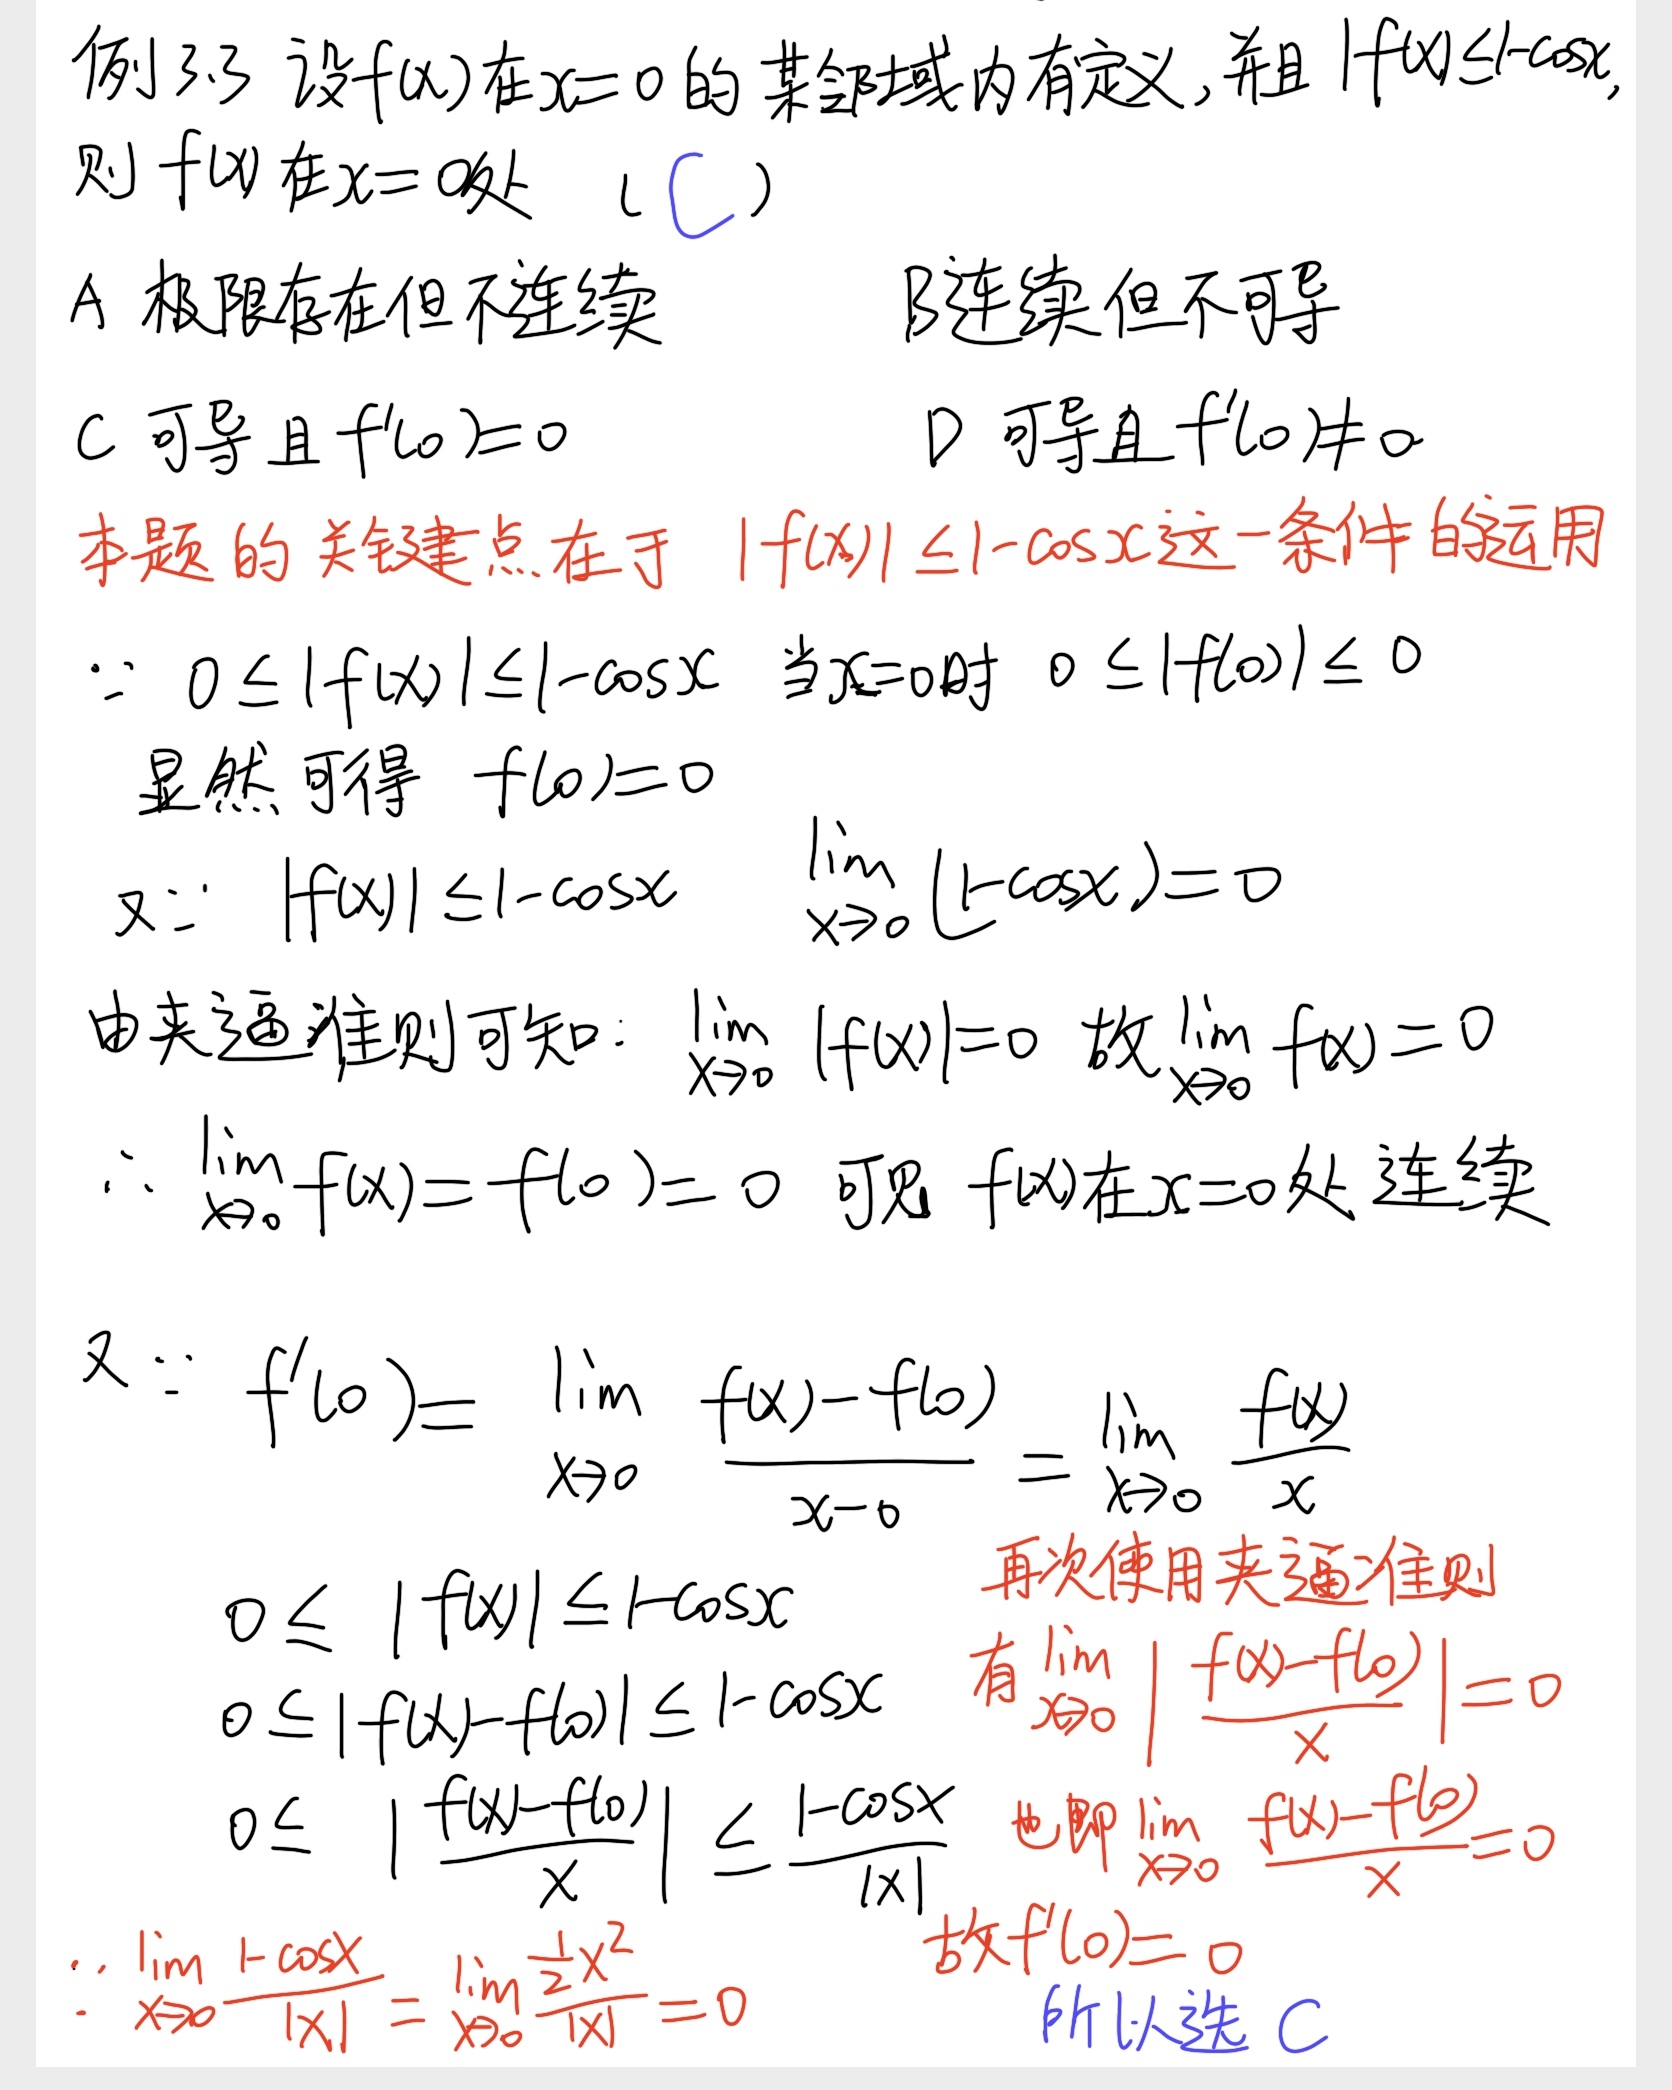 例3.3 设f(x)在x=0的某邻域内有定义,并且|f(x)|≤1-cosx,
则f(x)在x=0处 (C)
A 极限存在但不连续 B连续但不可导
C 可导且f'(0)=0 D 可导且f'(0)≠0
本题的关键点在于 |f(x)|≤1-cosx这一条件的运用
∵ 0≤|f(x)|≤1-cosx 当x=0时 0≤|f(0)|≤0
显然可得 f(0)=0
又∵ |f(x)|≤1-cosx lim x→0 (1-cosx)=0
由夹逼准则可知: lim x→0 |f(x)|=0 故 lim x→0 f(x)=0
∴ lim x→0 f(x)=f(0)=0 可见 f(x)在x=0处连续
又∵ f'(0)= lim x→0 (f(x)-f(0))/(x-0) = lim x→0 f(x)/x
0≤|f(x)|≤1-cosx
0≤|f(x)-f(0)|≤1-cosx
0≤|(f(x)-f(0))/x|≤(1-cosx)/|x|
∵ lim x→0 (1-cosx)/|x| = lim x→0 (½x²)/|x| =0
再次使用夹逼准则
有 lim x→0 |(f(x)-f(0))/x|=0
也即 lim x→0 (f(x)-f(0))/x=0
故f'(0)=0
所以选 C